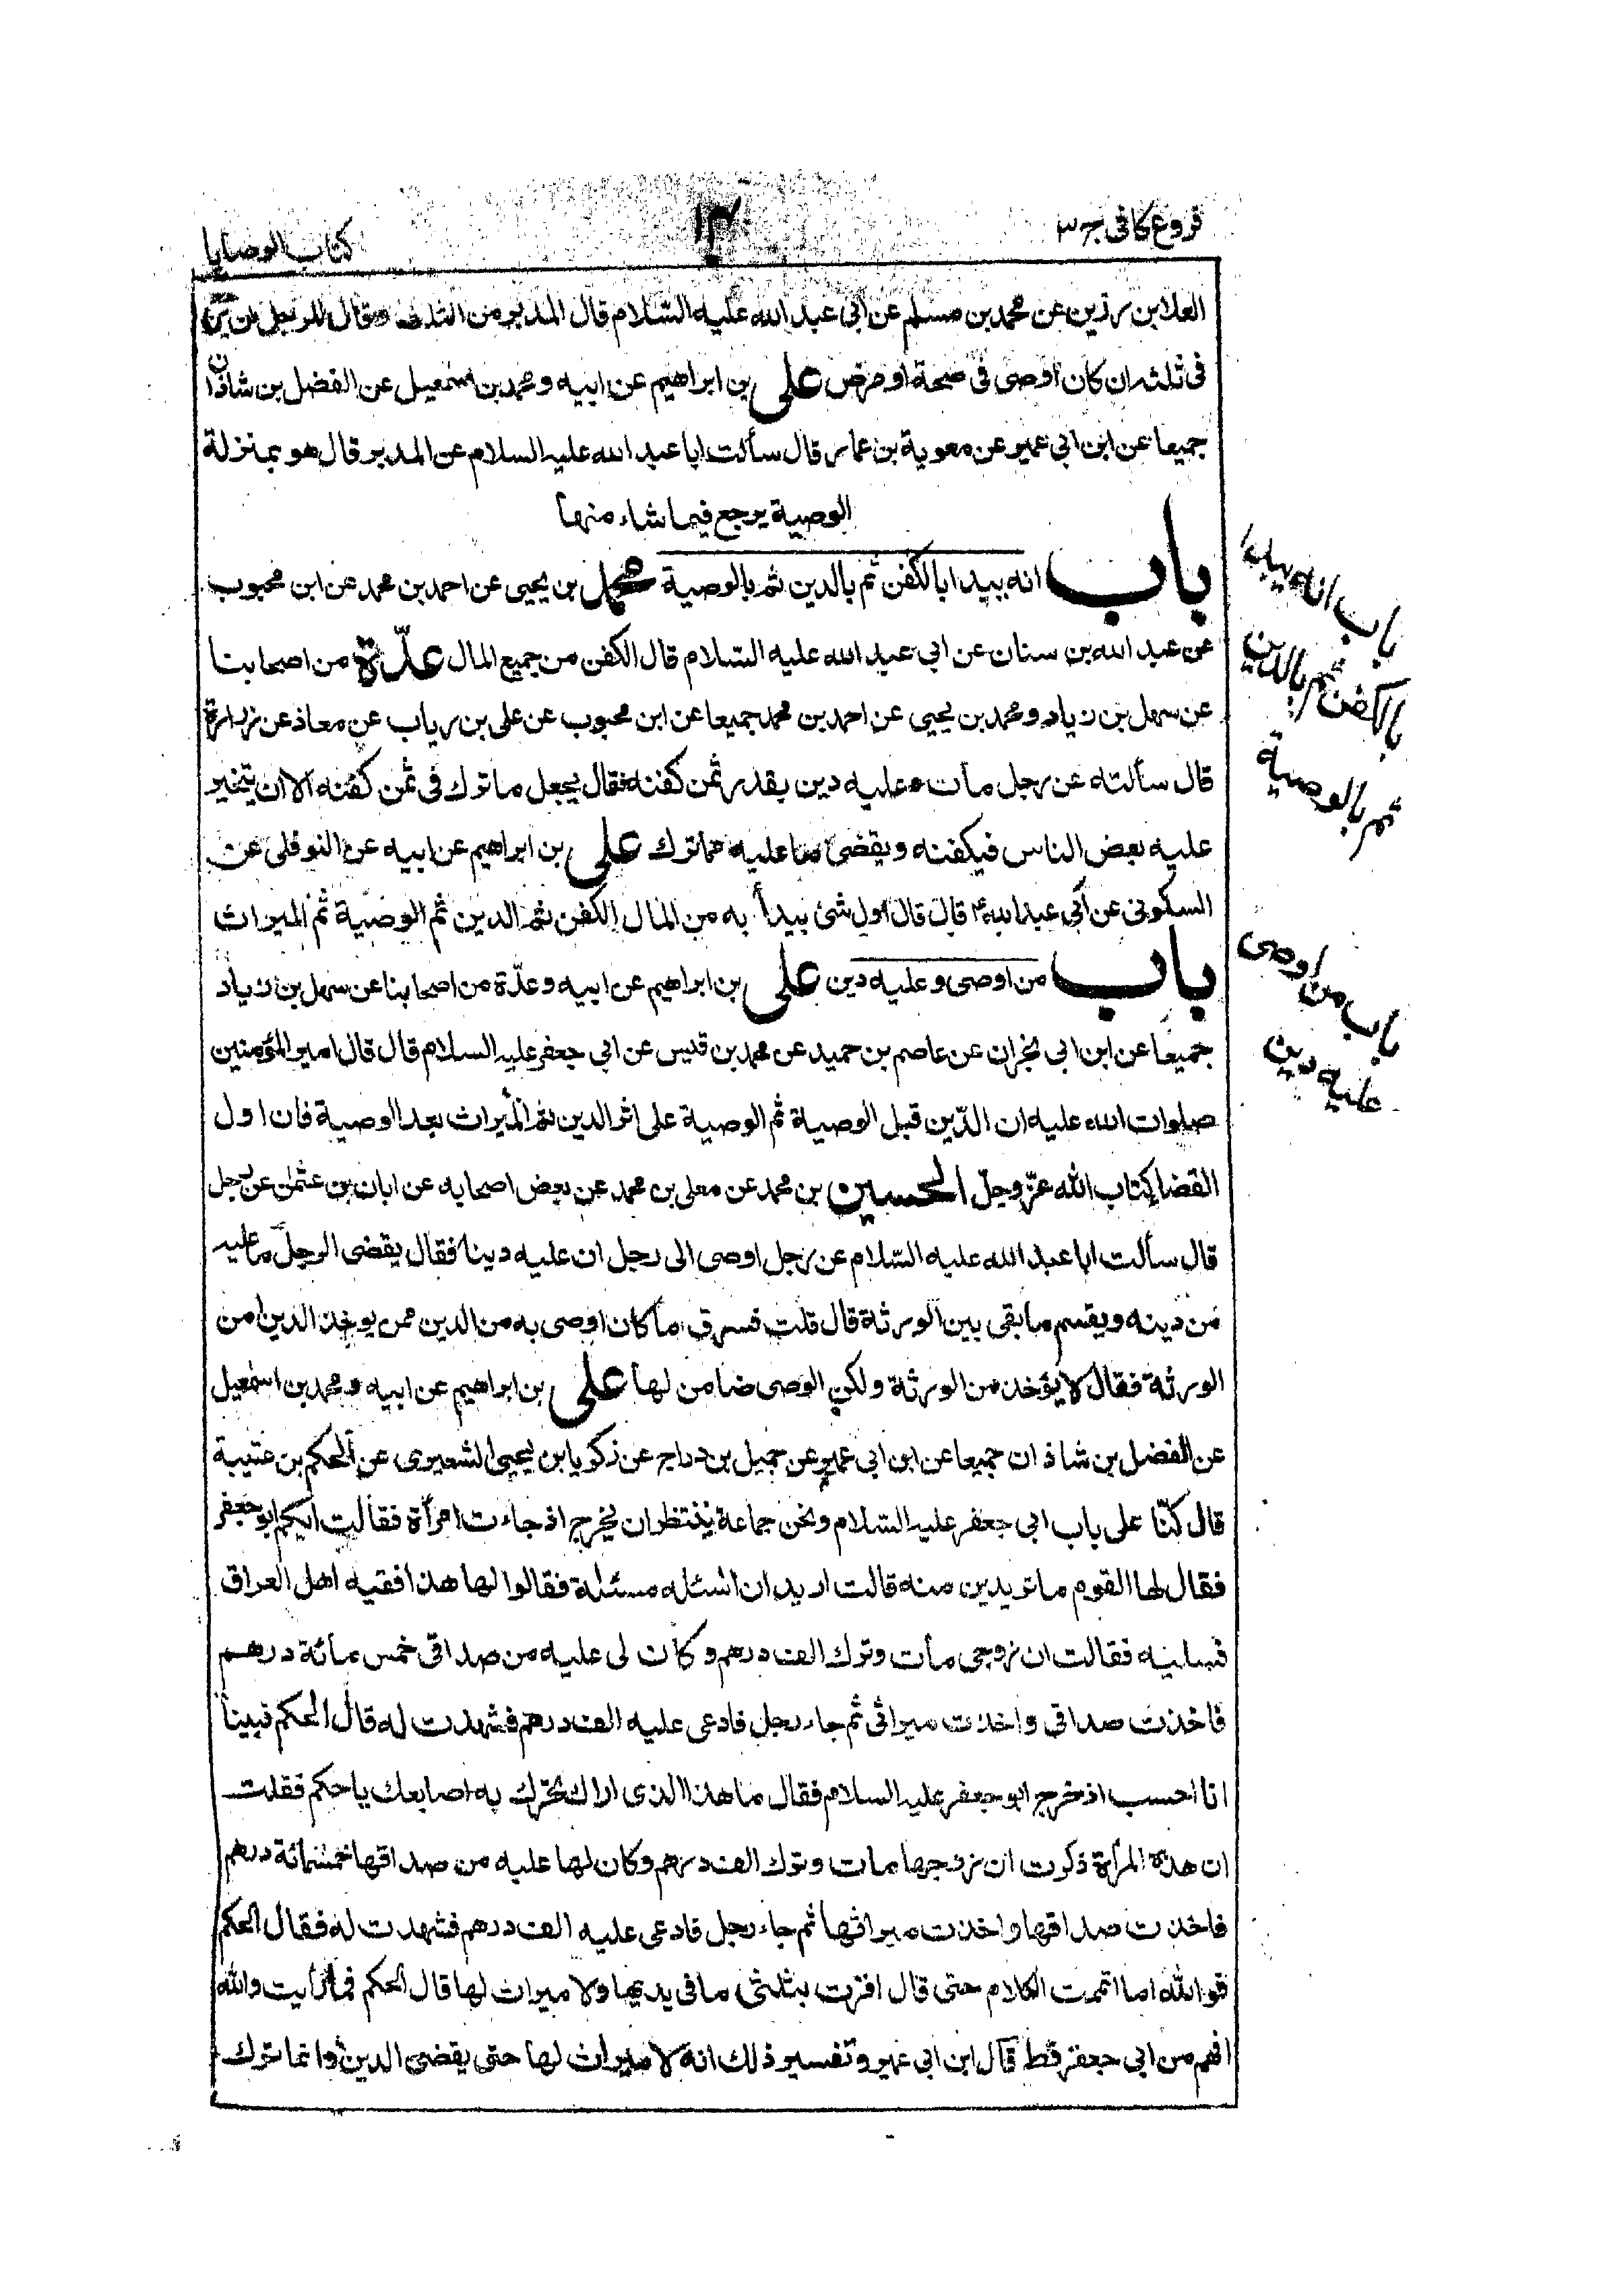 فروع كافى ج ٣
١٣
كتاب الوصايا
العلا بن رزين عن محمد بن مسلم عن ابى عبد الله عليه السّلام قال المدبر من الثلث وقال للرجل ان يرجع
فى ثلثه ان كان اوصى فى صحة او مرض على بن ابراهيم عن ابيه ومحمد بن اسمعيل عن الفضل بن شاذان
جميعا عن ابن ابى عمير عن معوية بن عمار قال سألت ابا عبد الله عليه السلام عن المدبر قال هو بمنزلة
الوصية يرجع فيما شاء منها
باب انه يبدا بالكفن ثم بالدين ثم بالوصية محمد بن يحيى عن احمد بن محمد عن ابن محبوب
عن عبد الله بن سنان عن ابى عبد الله عليه السّلام قال الكفن من جميع المال عدّة من اصحابنا
عن سهل بن زياد ومحمد بن يحيى عن احمد بن محمد جميعا عن ابن محبوب عن على بن رياب عن معاذ عن زرارة
قال سألته عن رجل مات وعليه دين بقدر ثمن كفنه فقال يجعل ما ترك فى ثمن كفنه الا ان يتخير
عليه بعض الناس فيكفنه ويقضى ما عليه مما ترك على بن ابراهيم عن ابيه عن النوفلى عن
السكونى عن ابى عبد الله ع قال قال اول شئ يبدأ به من المال الكفن ثم الدين ثم الوصية ثم الميراث
باب من اوصى وعليه دين على بن ابراهيم عن ابيه وعدّة من اصحابنا عن سهل بن زياد
جميعا عن ابن ابى نجران عن عاصم بن حميد عن محمد بن قيس عن ابى جعفر عليه السلام قال قال امير المؤمنين
صلوات الله عليه ان الدّين قبل الوصية ثم الوصية على اثر الدين ثم الميراث بعد الوصية فان اول
القضا كتاب الله عزّ وجلّ الحسين بن محمد عن معلى بن محمد عن بعض اصحابه عن ابان بن عثمان عن رجل
قال سألت ابا عبد الله عليه السّلام عن رجل اوصى الى رجل ان عليه دينا فقال يقضى الرجل ما عليه
من دينه ويقسم ما بقى بين الورثة قال قلت فسرق ما كان اوصى به من الدين ممن يوخذ الدين امن
الورثة فقال لا يؤخذ من الورثة ولكن الوصى ضامن لها على بن ابراهيم عن ابيه ومحمد بن اسمعيل
عن الفضل بن شاذان جميعا عن ابن ابى عمير عن جميل بن دراج عن زكريا بن يحيى الشعيرى عن الحكم بن عتيبة
قال كنّا على باب ابى جعفر عليه السّلام ونحن جماعة ننتظر ان يخرج اذ جاءت امرأة فقالت ايكم ابو جعفر
فقال لها القوم ما تريدين منه قالت اريد ان اسئله مسئلة فقالوا لها هذا فقيه اهل العراق
فسليه فقالت ان زوجى مات وترك الف درهم وكان لى عليه من صداقى خمس مائة درهم
فاخذت صداقى واخذت ميراثى ثم جاء رجل فادعى عليه الف درهم فشهدت له قال الحكم فبينا
انا احسب اذ خرج ابو جعفر عليه السلام فقال ما هذا الذى اراك تحرّك به اصابعك يا حكم فقلت
ان هذه المرأة ذكرت ان زوجها مات وترك الف درهم وكان لها عليه من صداقها خمسمائة درهم
فاخذت صداقها واخذت ميراثها ثم جاء رجل فادعى عليه الف درهم فشهدت له فقال الحكم
فو الله ما اتممت الكلام حتى قال اقرت بثلثى ما فى يديها ولا ميراث لها قال الحكم فما رايت والله
افهم من ابى جعفر قط قال ابن ابى عمير وتفسير ذلك انه لا ميراث لها حتى يقضى الدين وانما ترك
باب انه يبدا
بالكفن ثم بالدين
ثم بالوصية
باب من اوصى
عليه دين